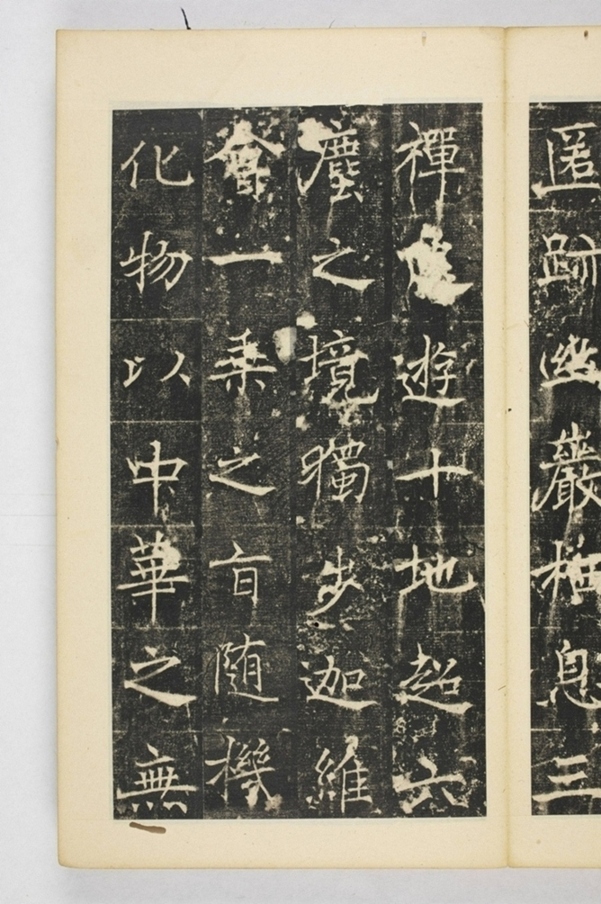 匿跡幽巖栖息三
禪遊十地超六
塵之境獨步迦維
會一乘之旨随機
化物以中華之無